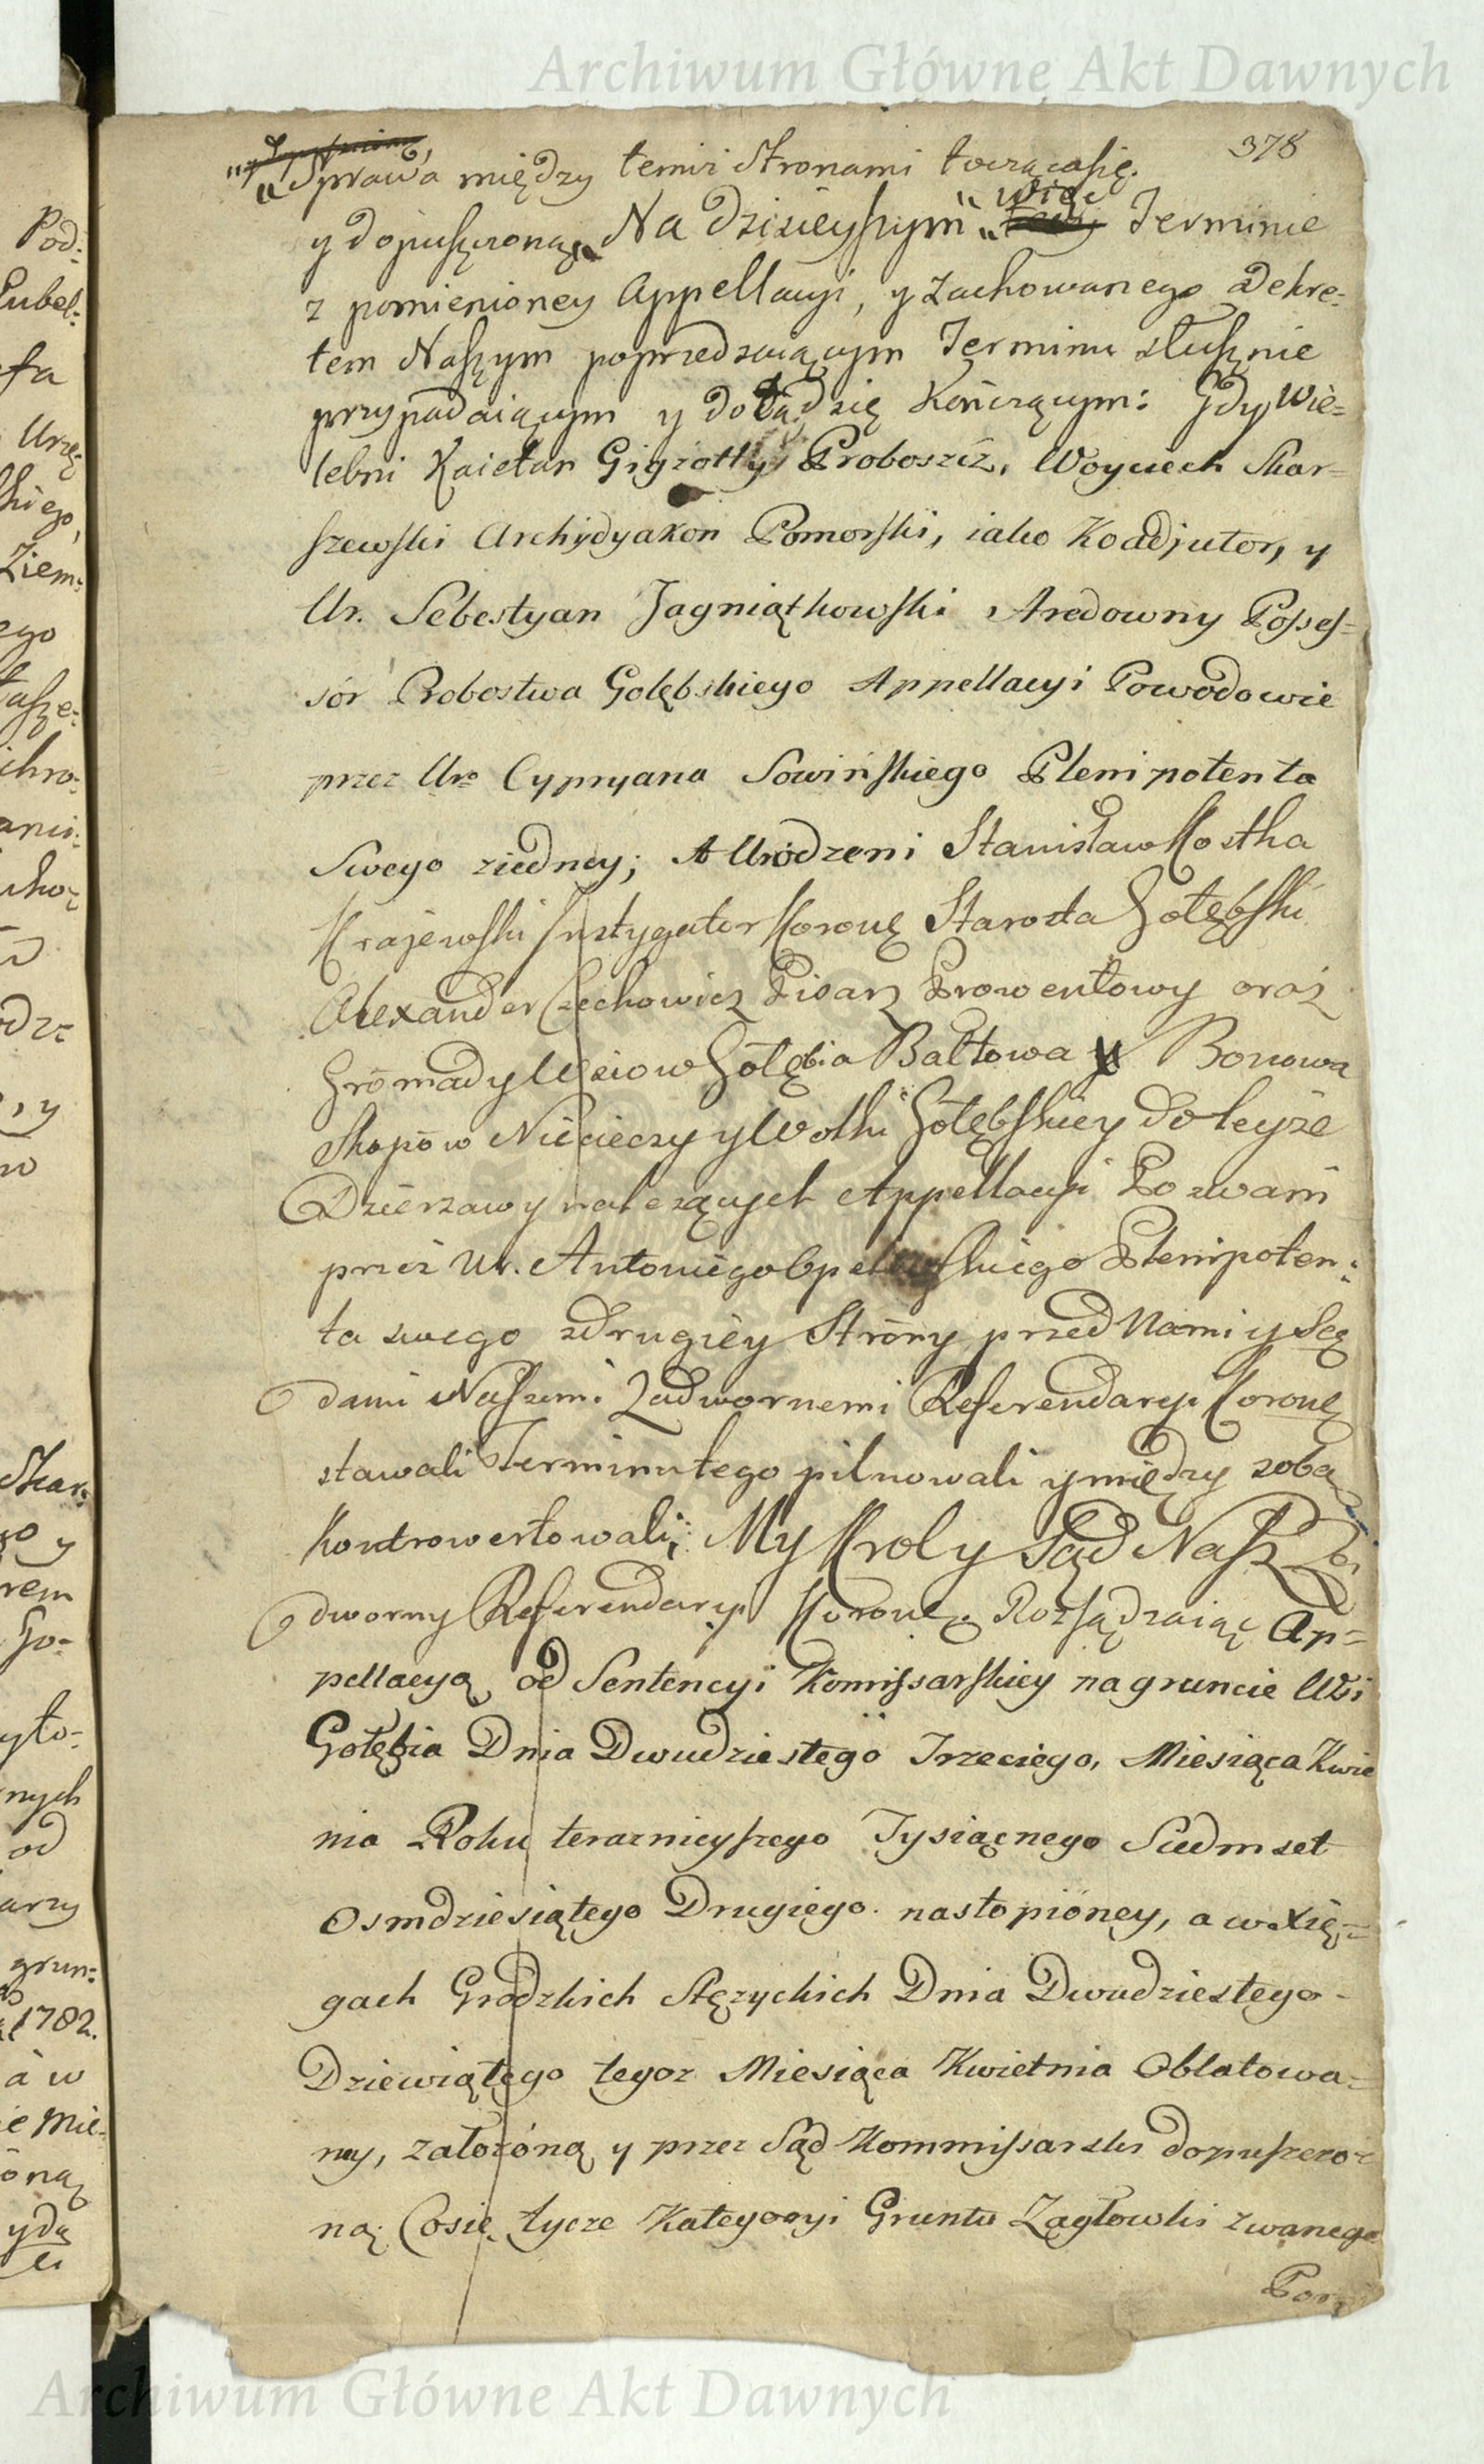 Archiwum Główne Akt Dawnych
378
"Sprawa między temiż Stronami toczącasię.
więc
y dopuszczoną. Na dzisieyszym Terminie
z pomienioney Appellacyi, y zachowanego Dekre=
tem Naszym poprzedzaiącym Terminu słusznie
przypadaiącym y dotąd się kończącym: Gdy Wie=
lebni Kaietan Gigzotty Proboszcz, Woyciech Skar=
szewski Archidyakon Pomorski, iako Koadjutor, y
Ur. Sebestyan Jagniątkowski Aredowny Posses=
sór Probostwa Gołębskiego Appellacyi Powodowie
przez Ur. Cypryana Sowińskiego Plenipotenta
Swego ziedney; A Urodzeni Stanisław Kostka
Krajewski Instygator Koronę Starosta Gołębski
Alexander Czechowicz Pisarz Prowentowy oraz
Gromady Wsiow Gołębia Bałtowa y Bonowa
Skokow Niecieczy y Wolki Gołębskiey do teyże
Dzierżawy należących Appellacyi Pozwani
przez Ur. Antoniego Plenipoten=
ta swego zdrugiey Strony przed Nami y Są
dami Naszemi Zadwornemi Referendaryi Koronę
stawali Terminu tego pilnowali y między sobą
kontrowertowali; My Krol y Sąd Nasz Za
dworny Referendaryi Koronę. Rozsądzaiąc Ap=
pellacyą od Sentencyi Komissarskiey na gruncie Wsi
Gołębia Dnia Dwudziestego Trzeciego, Miesiąca Kwie
nia Roku terazneyszego Tysiącnego Siedmset
Osmdziesiątego Drugiego nastopióney, a w Xię=
gach Grodzkich Stężyckich Dnia Dwudziestego
Dziewiątego tegoz Miesiąca Kwietnia Oblatowa=
ney, założóną y przez Sąd Kommissarski dopuszczo=
ną; Cosię tycze Kategoryi Gruntu Zagłowki zwanego
Archiwum Główne Akt Dawnych
Pod:
Lubel:
fa
Urzę
skiego,
Ziem:
ego
chro:
odz=
, y
Skar:
y
rem
Go=
yto=
nych
od
arzy
grun:
1782.
a w
ie Mie=
oną
ydą